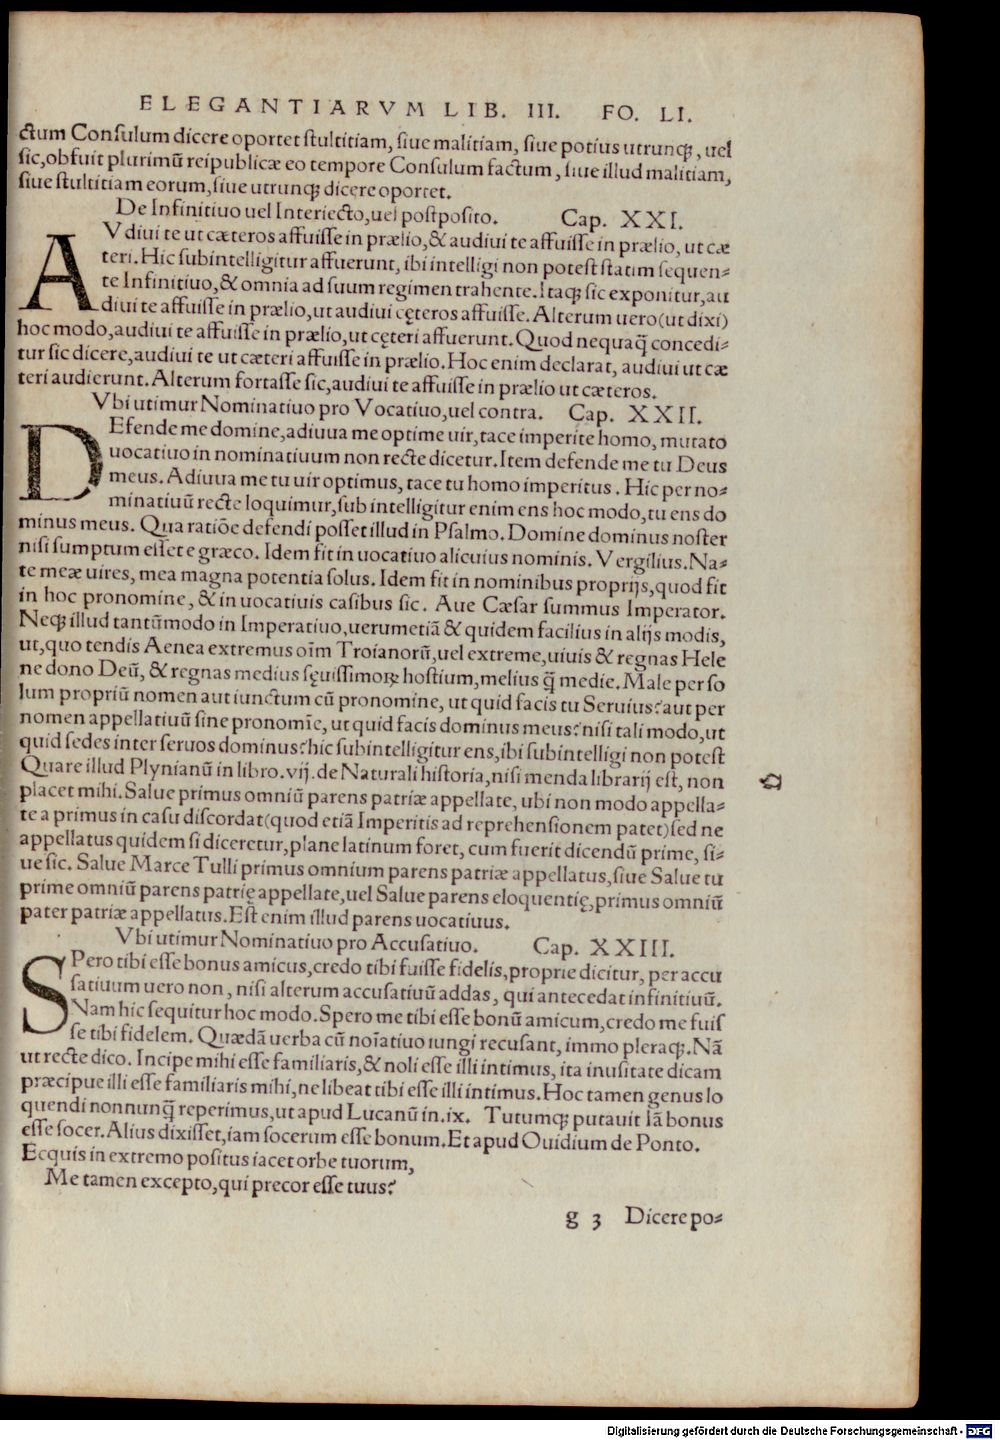 ELEGANTIARVM LIB. III. FO. LI.
ctum Consulum dicere oportet stultitiam, siue malitiam, siue potius utrunq;, uel
sic, obfuit plurimū reipublicæ eo tempore Consulum factum, siue illud malitiam,
siue stultitiam eorum, siue utrunq; dicere oportet.
De Infinitiuo uel Interiecto, uel postposito. Cap. XXI.
AVdiui te ut cæteros affuisse in prælio, & audiui te affuisse in prælio, ut cæ
teri. Hic subintelligitur affuerunt, ibi intelligi non potest statim sequen-
te Infinitiuo, & omnia ad suum regimen trahente. Itaq; sic exponitur, au
diui te affuisse in prælio, ut audiui cęteros affuisse. Alterum uero (ut dixi)
hoc modo, audiui te affuisse in prælio, ut cęteri affuerunt. Quod nequaq̄ concedi-
tur sic dicere, audiui te ut cæteri affuisse in prælio. Hoc enim declarat, audiui ut cæ
teri audierunt. Alterum fortasse sic, audiui te affuisse in prælio ut cæteros.
Vbi utimur Nominatiuo pro Vocatiuo, uel contra. Cap. XXII.
DEfende me domine, adiuua me optime uir, tace imperite homo, mutato
uocatiuo in nominatiuum non recte dicetur. Item defende me tu Deus
meus. Adiuua me tu uir optimus, tace tu homo imperitus. Hic per no-
minatiuū recte loquimur, sub intelligitur enim ens hoc modo, tu ens do
minus meus. Qua ratiōe defendi posset illud in Psalmo. Domine dominus noster
nisi sumptum esset e græco. Idem fit in uocatiuo alicuius nominis. Vergilius. Na-
te meæ uires, mea magna potentia solus. Idem fit in nominibus proprijs, quod fit
in hoc pronomine, & in uocatiuis casibus sic. Aue Cæsar summus Imperator.
Neq; illud tantūmodo in Imperatiuo, uerumetiā & quidem facilius in alijs modis,
ut, quo tendis Aenea extremus oīm Troianorū, uel extreme, uiuis & regnas Hele
ne dono Deū, & regnas medius sęuissimoꝝ hostium, melius q̄ medie. Male per so
lum propriū nomen aut iunctum cū pronomine, ut quid facis tu Seruius? aut per
nomen appellatiuū sine pronomīe, ut quid facis dominus meus? nisi tali modo, ut
quid sedes inter seruos dominus? hic subintelligitur ens, ibi subintelligi non potest
Quare illud Plynianū in libro. vij. de Naturali historia, nisi menda librarij est, non
placet mihi. Salue primus omniū parens patriæ appellate, ubi non modo appella-
te a primus in casu discordat (quod etiā Imperitis ad reprehensionem patet) sed ne
appellatus quidem si diceretur, plane latinum foret, cum fuerit dicendū prime, si-
ue sic. Salue Marce Tulli primus omnium parens patriæ appellatus, siue Salue tu
prime omniū parens patrię appellate, uel Salue parens eloquentię, primus omniū
pater patriæ appellatus. Est enim illud parens uocatiuus.
Vbi utimur Nominatiuo pro Accusatiuo. Cap. XXIII.
SPero tibi esse bonus amicus, credo tibi fuisse fidelis, proprie dicitur, per accu
satiuum uero non, nisi alterum accusatiuū addas, qui antecedat infinitiuū.
Nam hic sequitur hoc modo. Spero me tibi esse bonū amicum, credo me fuis
se tibi fidelem. Quædā uerba cū noīatiuo iungi recusant, immo pleraq;. Nā
ut recte dico. Incipe mihi esse familiaris, & noli esse illi intimus, ita inusitate dicam
præcipue illi esse familiaris mihi, ne libeat tibi esse illi intimus. Hoc tamen genus lo
quendi nonnunq̄ reperimus, ut apud Lucanū in. ix. Tutumq; putauit Iā bonus
esse socer. Alius dixisset, iam socerum esse bonum. Et apud Ouidium de Ponto.
Ecquis in extremo positus iacet orbe tuorum,
Me tamen excepto, qui precor esse tuus?
g 3 Dicere po-
Digitalisierung gefördert durch die Deutsche Forschungsgemeinschaft - DFG